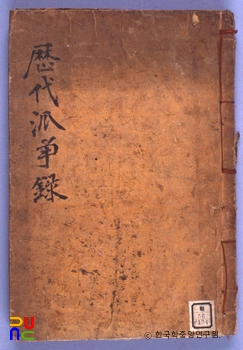 歷代派爭錄
한국학중앙연구원